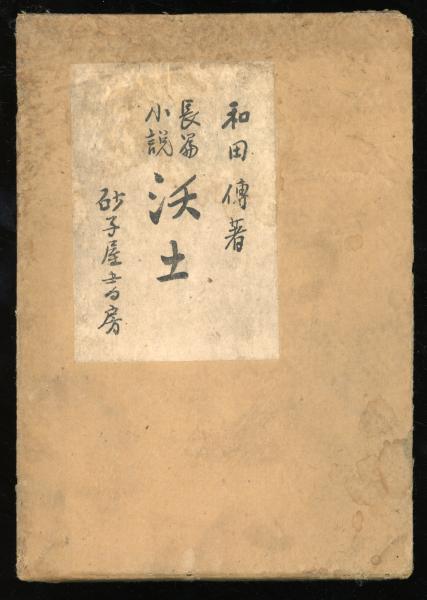 和田傳著
長篇
小説
沃土
砂子屋書房